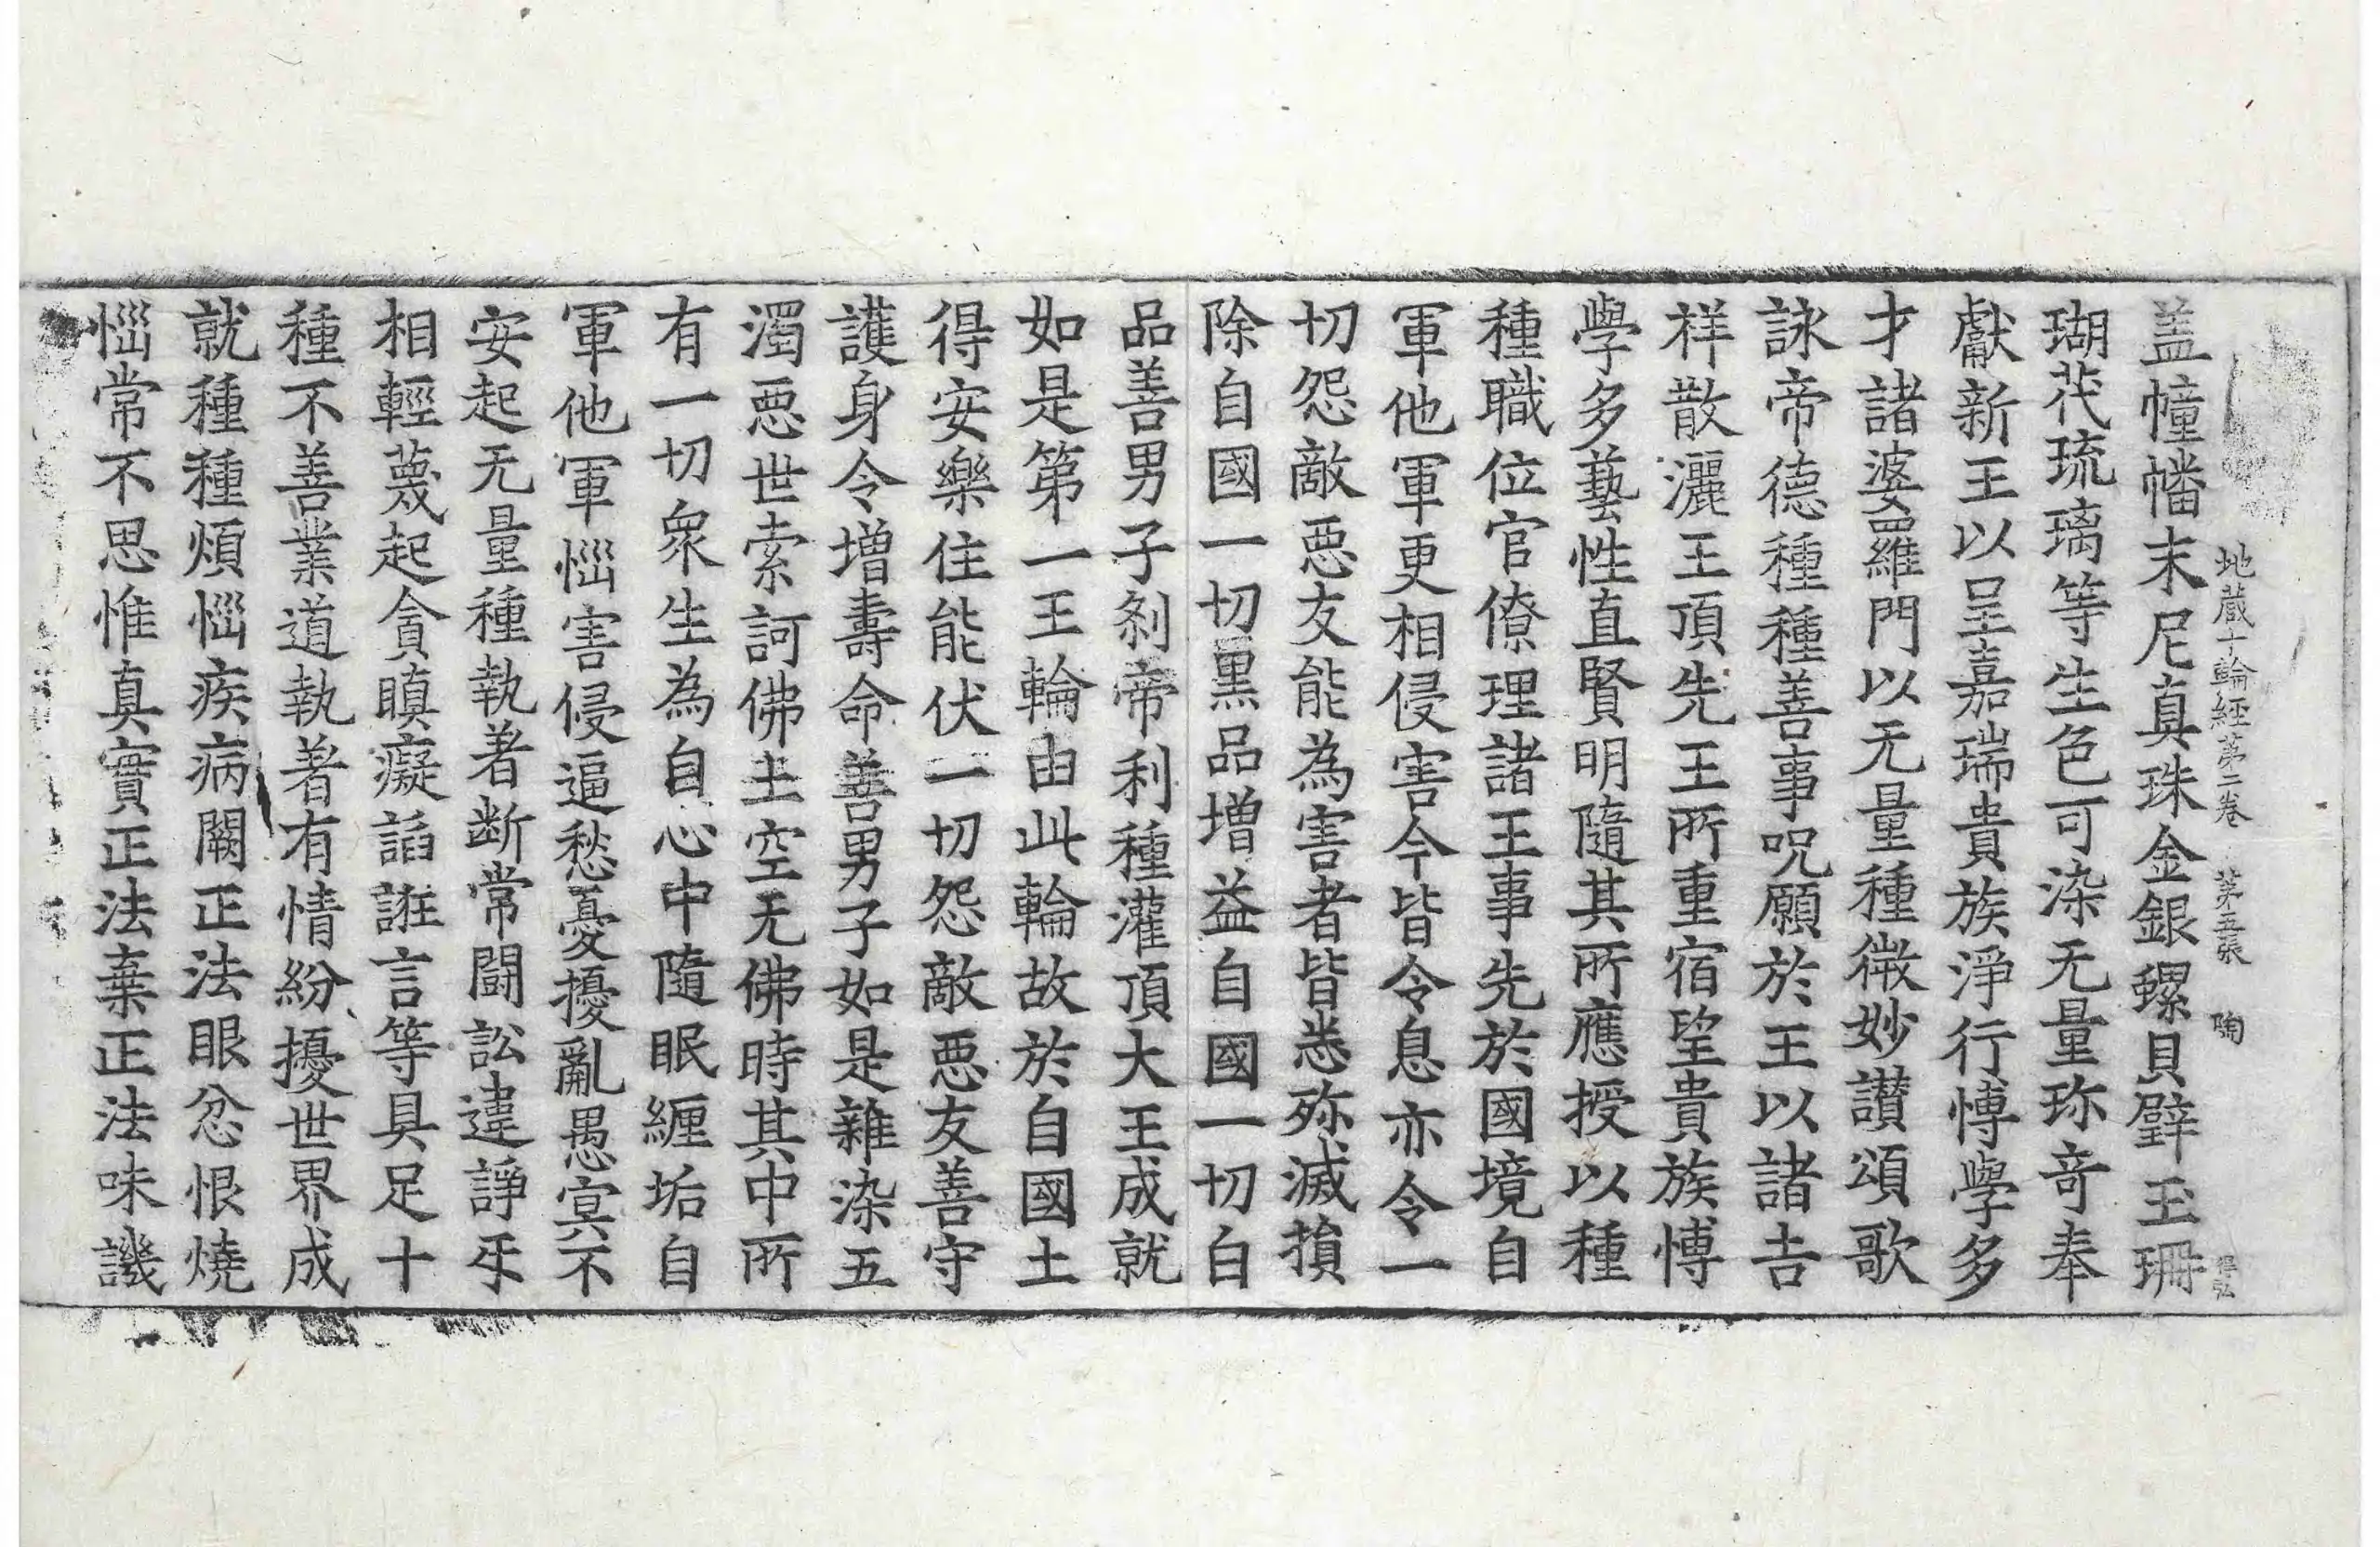 地蔵十輪經第二卷 第五張 陶
蓋幢幡末尼真珠金銀螺貝璧玉珊
瑚茷琉璃等生色可染无量珎奇奉
獻新王以呈嘉瑞貴族淨行博學多
才諸婆羅門以无量種微妙讃頌歌
詠帝德種種善事呪願於王以諸吉
祥散灑王頂先王所重宿望貴族博
學多藝性直賢明隨其所應授以種
種職位官僚理諸王事先於國境自
軍他軍更相侵害今皆令息亦令一
切怨敵惡友能為害者皆悉殄滅損
除自國一切黒品增益自國一切白
品善男子刹帝利種灌頂大王成就
如是第一王輪由此輪故於自國土
得安樂住能伏一切怨敵惡友善守
護身令增壽命善男子如是雜染五
濁惡世索訶佛土空无佛時其中所
有一切衆生為自心中隨眠纏垢自
軍他軍惱害侵逼愁憂擾亂愚冥不
安起无量種執著断常闘訟違諍㸦
相輕蔑起貪瞋癡諂誑言等具足十
種不善業道執著有情紛擾世界成
就種種煩惱疾病闕正法眼忿恨燒
惱常不思惟真實正法棄正法味譏